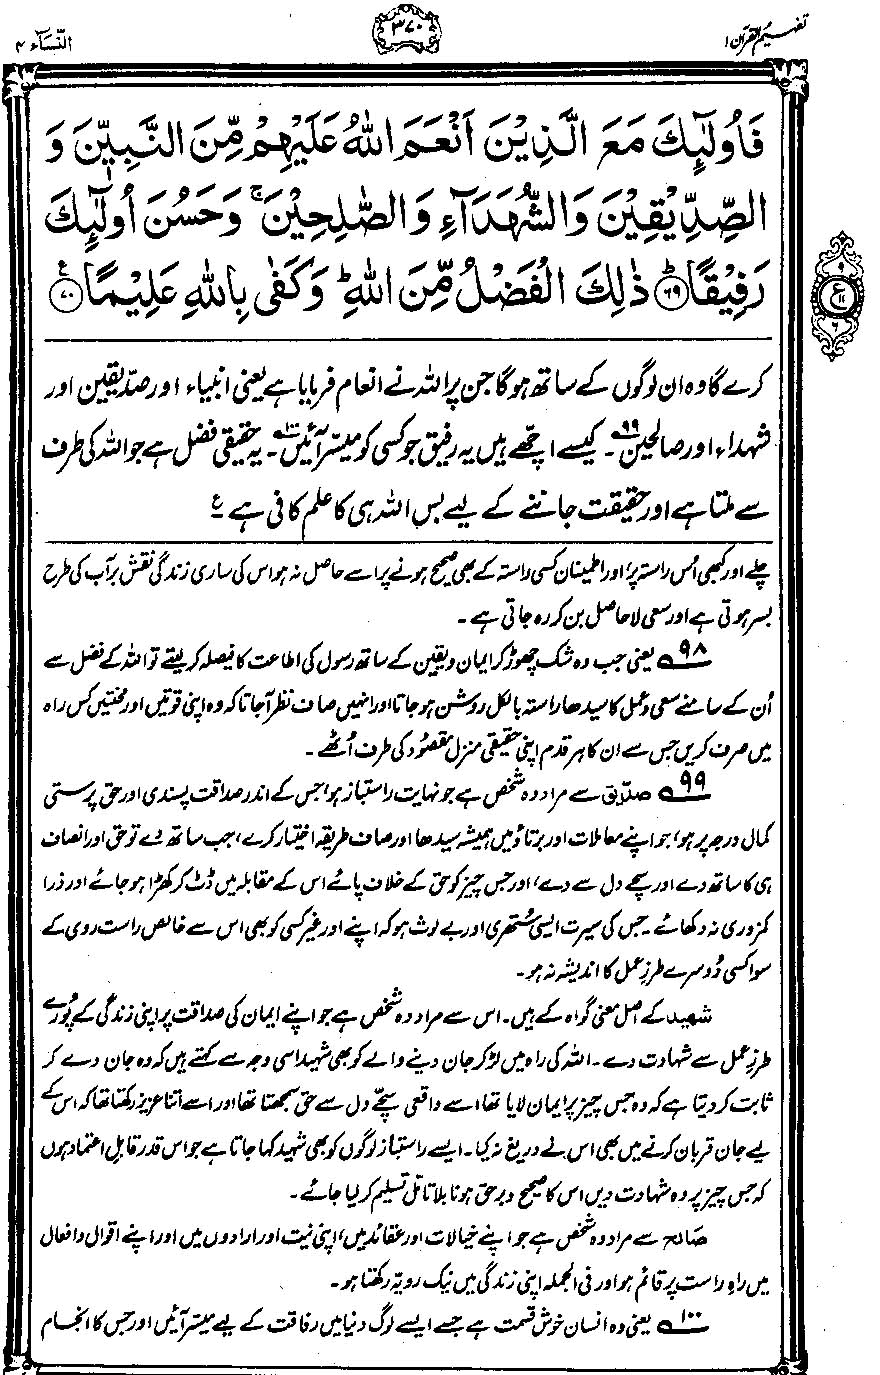 تفہیم القرآن ۱
۳۷۰
النّسَآء ۴
فَاُولٰٓئِكَ مَعَ الَّذِيْنَ اَنْعَمَ اللّٰهُ عَلَيْهِمْ مِّنَ النَّبِيّٖنَ وَ
الصِّدِّيْقِيْنَ وَالشُّهَدَآءِ وَالصّٰلِحِيْنَ ۚ وَحَسُنَ اُولٰٓئِكَ
رَفِيْقًا ؕ۶۹ ذٰلِكَ الْفَضْلُ مِنَ اللّٰهِ ؕ وَكَفٰى بِاللّٰهِ عَلِيْمًا ۷۰ ع
۹
ع ۱۱
۶
کرے گا وہ ان لوگوں کے ساتھ ہوگا جن پر اللہ نے انعام فرمایا ہے یعنی انبیاء اور صدّیقین اور
شہداء اور صالحین۹۹۔ کیسے اچھے ہیں یہ رفیق جو کسی کو میسّر آئیں۱۰۰۔ یہ حقیقی فضل ہے جو اللہ کی طرف
سے ملتا ہے اور حقیقت جاننے کے لیے بس اللہ ہی کا علم کافی ہے ع
چلے اور کبھی اُس راستہ پر، اور اطمینان کسی راستہ کے بھی صحیح ہونے پر اسے حاصل نہ ہو اس کی ساری زندگی نقش بر آب کی طرح
بسر ہوتی ہے اور سعی لا حاصل بن کر رہ جاتی ہے۔
۹۸ یعنی جب وہ شک چھوڑ کر ایمان و یقین کے ساتھ رسول کی اطاعت کا فیصلہ کر لیتے تو اللہ کے فضل سے
اُن کے سامنے سعی و عمل کا سیدھا راستہ بالکل روشن ہو جاتا اور انہیں صاف نظر آجاتا کہ وہ اپنی قوتیں اور محنتیں کس راہ
میں صرف کریں جس سے ان کا ہر قدم اپنی حقیقی منزلِ مقصُود کی طرف اُٹھے۔
۹۹ صدّیق سے مراد وہ شخص ہے جو نہایت راستباز ہو، جس کے اندر صداقت پسندی اور حق پرستی
کمال درجہ پر ہو، جو اپنے معاملات اور برتاؤ میں ہمیشہ سیدھا اور صاف طریقہ اختیار کرے، جب ساتھ دے تو حق اور انصاف
ہی کا ساتھ دے اور سچے دل سے دے، اور جس چیز کو حق کے خلاف پائے اس کے مقابلہ میں ڈٹ کر کھڑا ہو جائے اور ذرا
کمزوری نہ دکھائے۔ جس کی سیرت ایسی سُتھری اور بے لوث ہو کہ اپنے اور غیر کسی کو بھی اس سے خالص راست روی کے
سوا کسی دُوسرے طرزِ عمل کا اندیشہ نہ ہو۔
شہید کے اصل معنی گواہ کے ہیں۔ اس سے مراد وہ شخص ہے جو اپنے ایمان کی صداقت پر اپنی زندگی کے پُورے
طرزِ عمل سے شہادت دے۔ اللہ کی راہ میں لڑ کر جان دینے والے کو بھی شہید اسی وجہ سے کہتے ہیں کہ وہ جان دے کر
ثابت کر دیتا ہے کہ وہ جس چیز پر ایمان لایا تھا اسے واقعی سچّے دل سے حق سمجھتا تھا اور اسے اتنا عزیز رکھتا تھا کہ اس کے
لیے جان قربان کرنے میں بھی اس نے دریغ نہ کیا۔ ایسے راستباز لوگوں کو بھی شہید کہا جاتا ہے جو اس قدر قابلِ اعتماد ہوں
کہ جس چیز پر وہ شہادت دیں اس کا صحیح و برحق ہونا بلا تامّل تسلیم کر لیا جائے۔
صَالح سے مراد وہ شخص ہے جو اپنے خیالات اور عقائد میں، اپنی نیت اور ارادوں میں اور اپنے اقوال و افعال
میں راہِ راست پر قائم ہو اور فی الجملہ اپنی زندگی میں نیک رویّہ رکھتا ہو۔
۱۰۰ یعنی وہ انسان خوش قسمت ہے جسے ایسے لوگ دنیا میں رفاقت کے لیے میسّر آئیں اور جس کا انجام